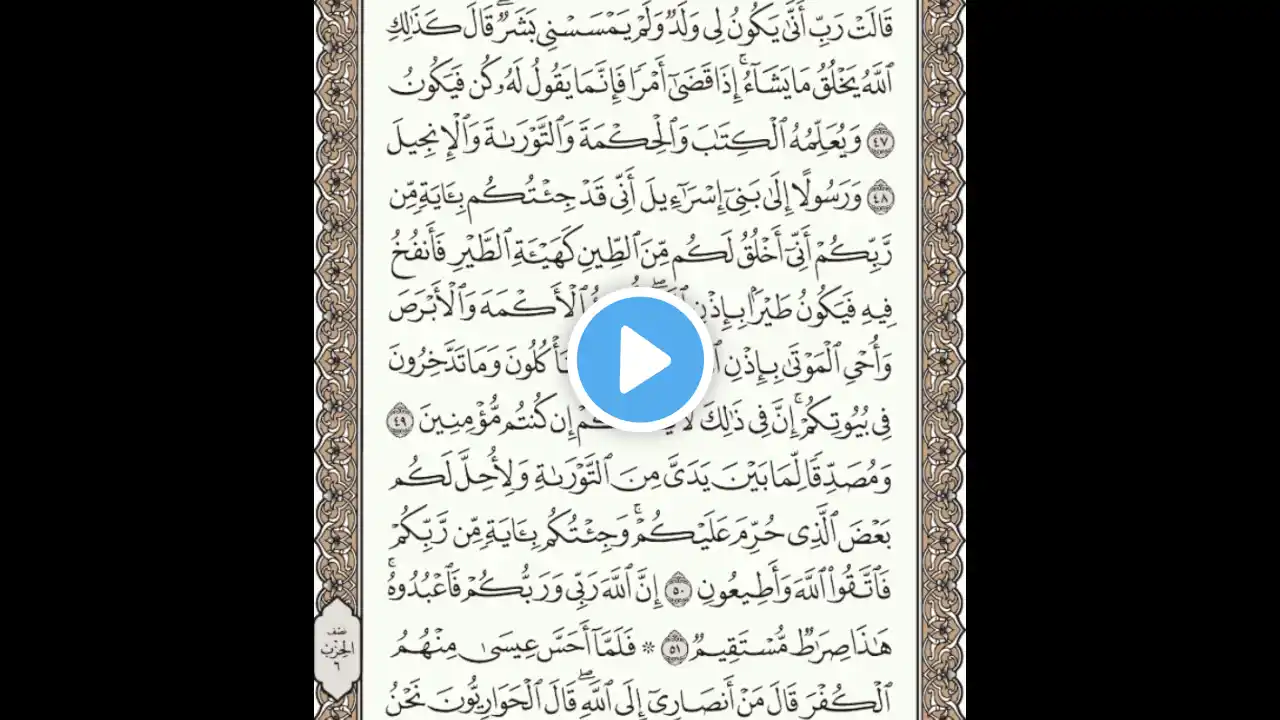 قَالَتْ رَبِّ أَنَّىٰ يَكُونُ لِى وَلَدٌ وَلَمْ يَمْسَسْنِى بَشَرٌ ۖ قَالَ كَذَٰلِكِ
ٱللَّهُ يَخْلُقُ مَا يَشَآءُ ۚ إِذَا قَضَىٰٓ أَمْرًا فَإِنَّمَا يَقُولُ لَهُۥ كُن فَيَكُونُ
٤٧ وَيُعَلِّمُهُ ٱلْكِتَٰبَ وَٱلْحِكْمَةَ وَٱلتَّوْرَىٰةَ وَٱلْإِنجِيلَ
٤٨ وَرَسُولًا إِلَىٰ بَنِىٓ إِسْرَٰٓءِيلَ أَنِّى قَدْ جِئْتُكُم بِـَٔايَةٍ مِّن
رَّبِّكُمْ أَنِّىٓ أَخْلُقُ لَكُم مِّنَ ٱلطِّينِ كَهَيْـَٔةِ ٱلطَّيْرِ فَأَنفُخُ
فِيهِ فَيَكُونُ طَيْرًۢا بِإِذْنِ ٱلْأَكْمَهَ وَٱلْأَبْرَصَ
وَأُحْىِ ٱلْمَوْتَىٰ بِإِذْنِ تَأْكُلُونَ وَمَا تَدَّخِرُونَ
فِى بُيُوتِكُمْ ۚ إِنَّ فِى ذَٰلِكَ إِن كُنتُم مُّؤْمِنِينَ ٤٩
وَمُصَدِّقًا لِّمَا بَيْنَ يَدَىَّ مِنَ ٱلتَّوْرَىٰةِ وَلِأُحِلَّ لَكُم
بَعْضَ ٱلَّذِى حُرِّمَ عَلَيْكُمْ ۚ وَجِئْتُكُم بِـَٔايَةٍ مِّن رَّبِّكُمْ
فَٱتَّقُوا۟ ٱللَّهَ وَأَطِيعُونِ ٥٠ إِنَّ ٱللَّهَ رَبِّى وَرَبُّكُمْ فَٱعْبُدُوهُ ۗ
هَٰذَا صِرَٰطٌ مُّسْتَقِيمٌ ٥١ ۞ فَلَمَّآ أَحَسَّ عِيسَىٰ مِنْهُمُ
ٱلْكُفْرَ قَالَ مَنْ أَنصَارِىٓ إِلَى ٱللَّهِ ۖ قَالَ ٱلْحَوَارِيُّونَ نَحْنُ
نصف
الحزب
٦